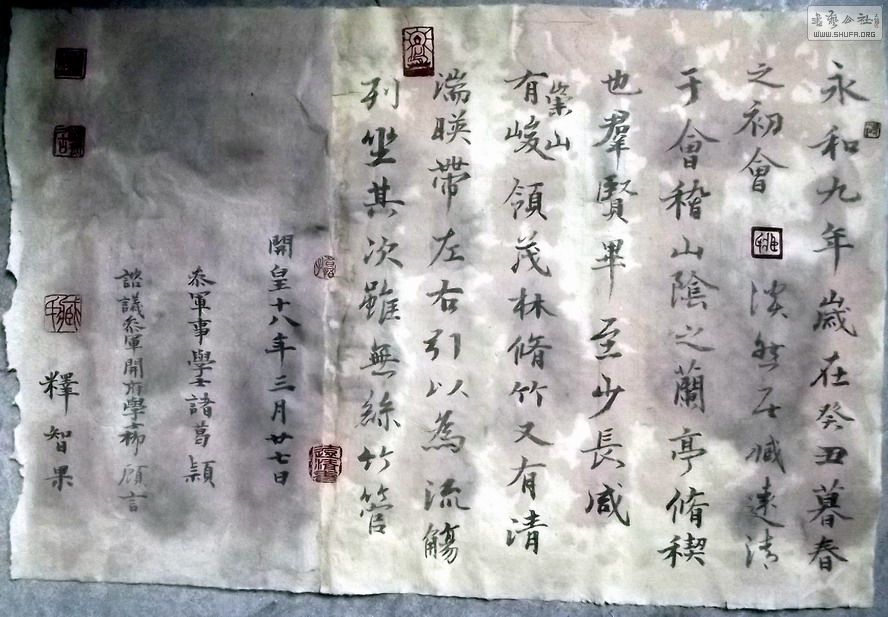 永和九年歲在癸丑暮春
之初會 淡然无臧遠清
于會稽山陰之蘭亭脩稧
也羣賢畢至少長咸
崇山
有峻領茂林脩竹又有清
湍暎帶左右引以為流觴
列坐其次雖無絲竹管
開皇十八年三月廿七日
叅軍事學士諸葛穎
諮議叅軍開府學士柳顧言
釋智果
WWW.SHUFA.ORG